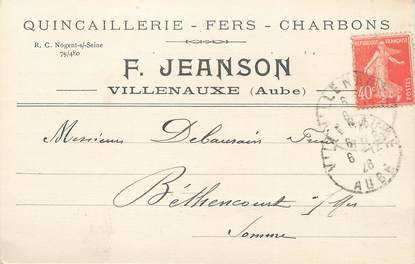 QUINCAILLERIE - FERS - CHARBONS
R. C. Nogent-s/-Seine
79/480
F. JEANSON
VILLENAUXE (Aube)
REPUBLIQUE FRANÇAISE
40c
POSTES
AUBE
Messieurs Debeaurain Frères
Béthencourt s/Mer
Somme